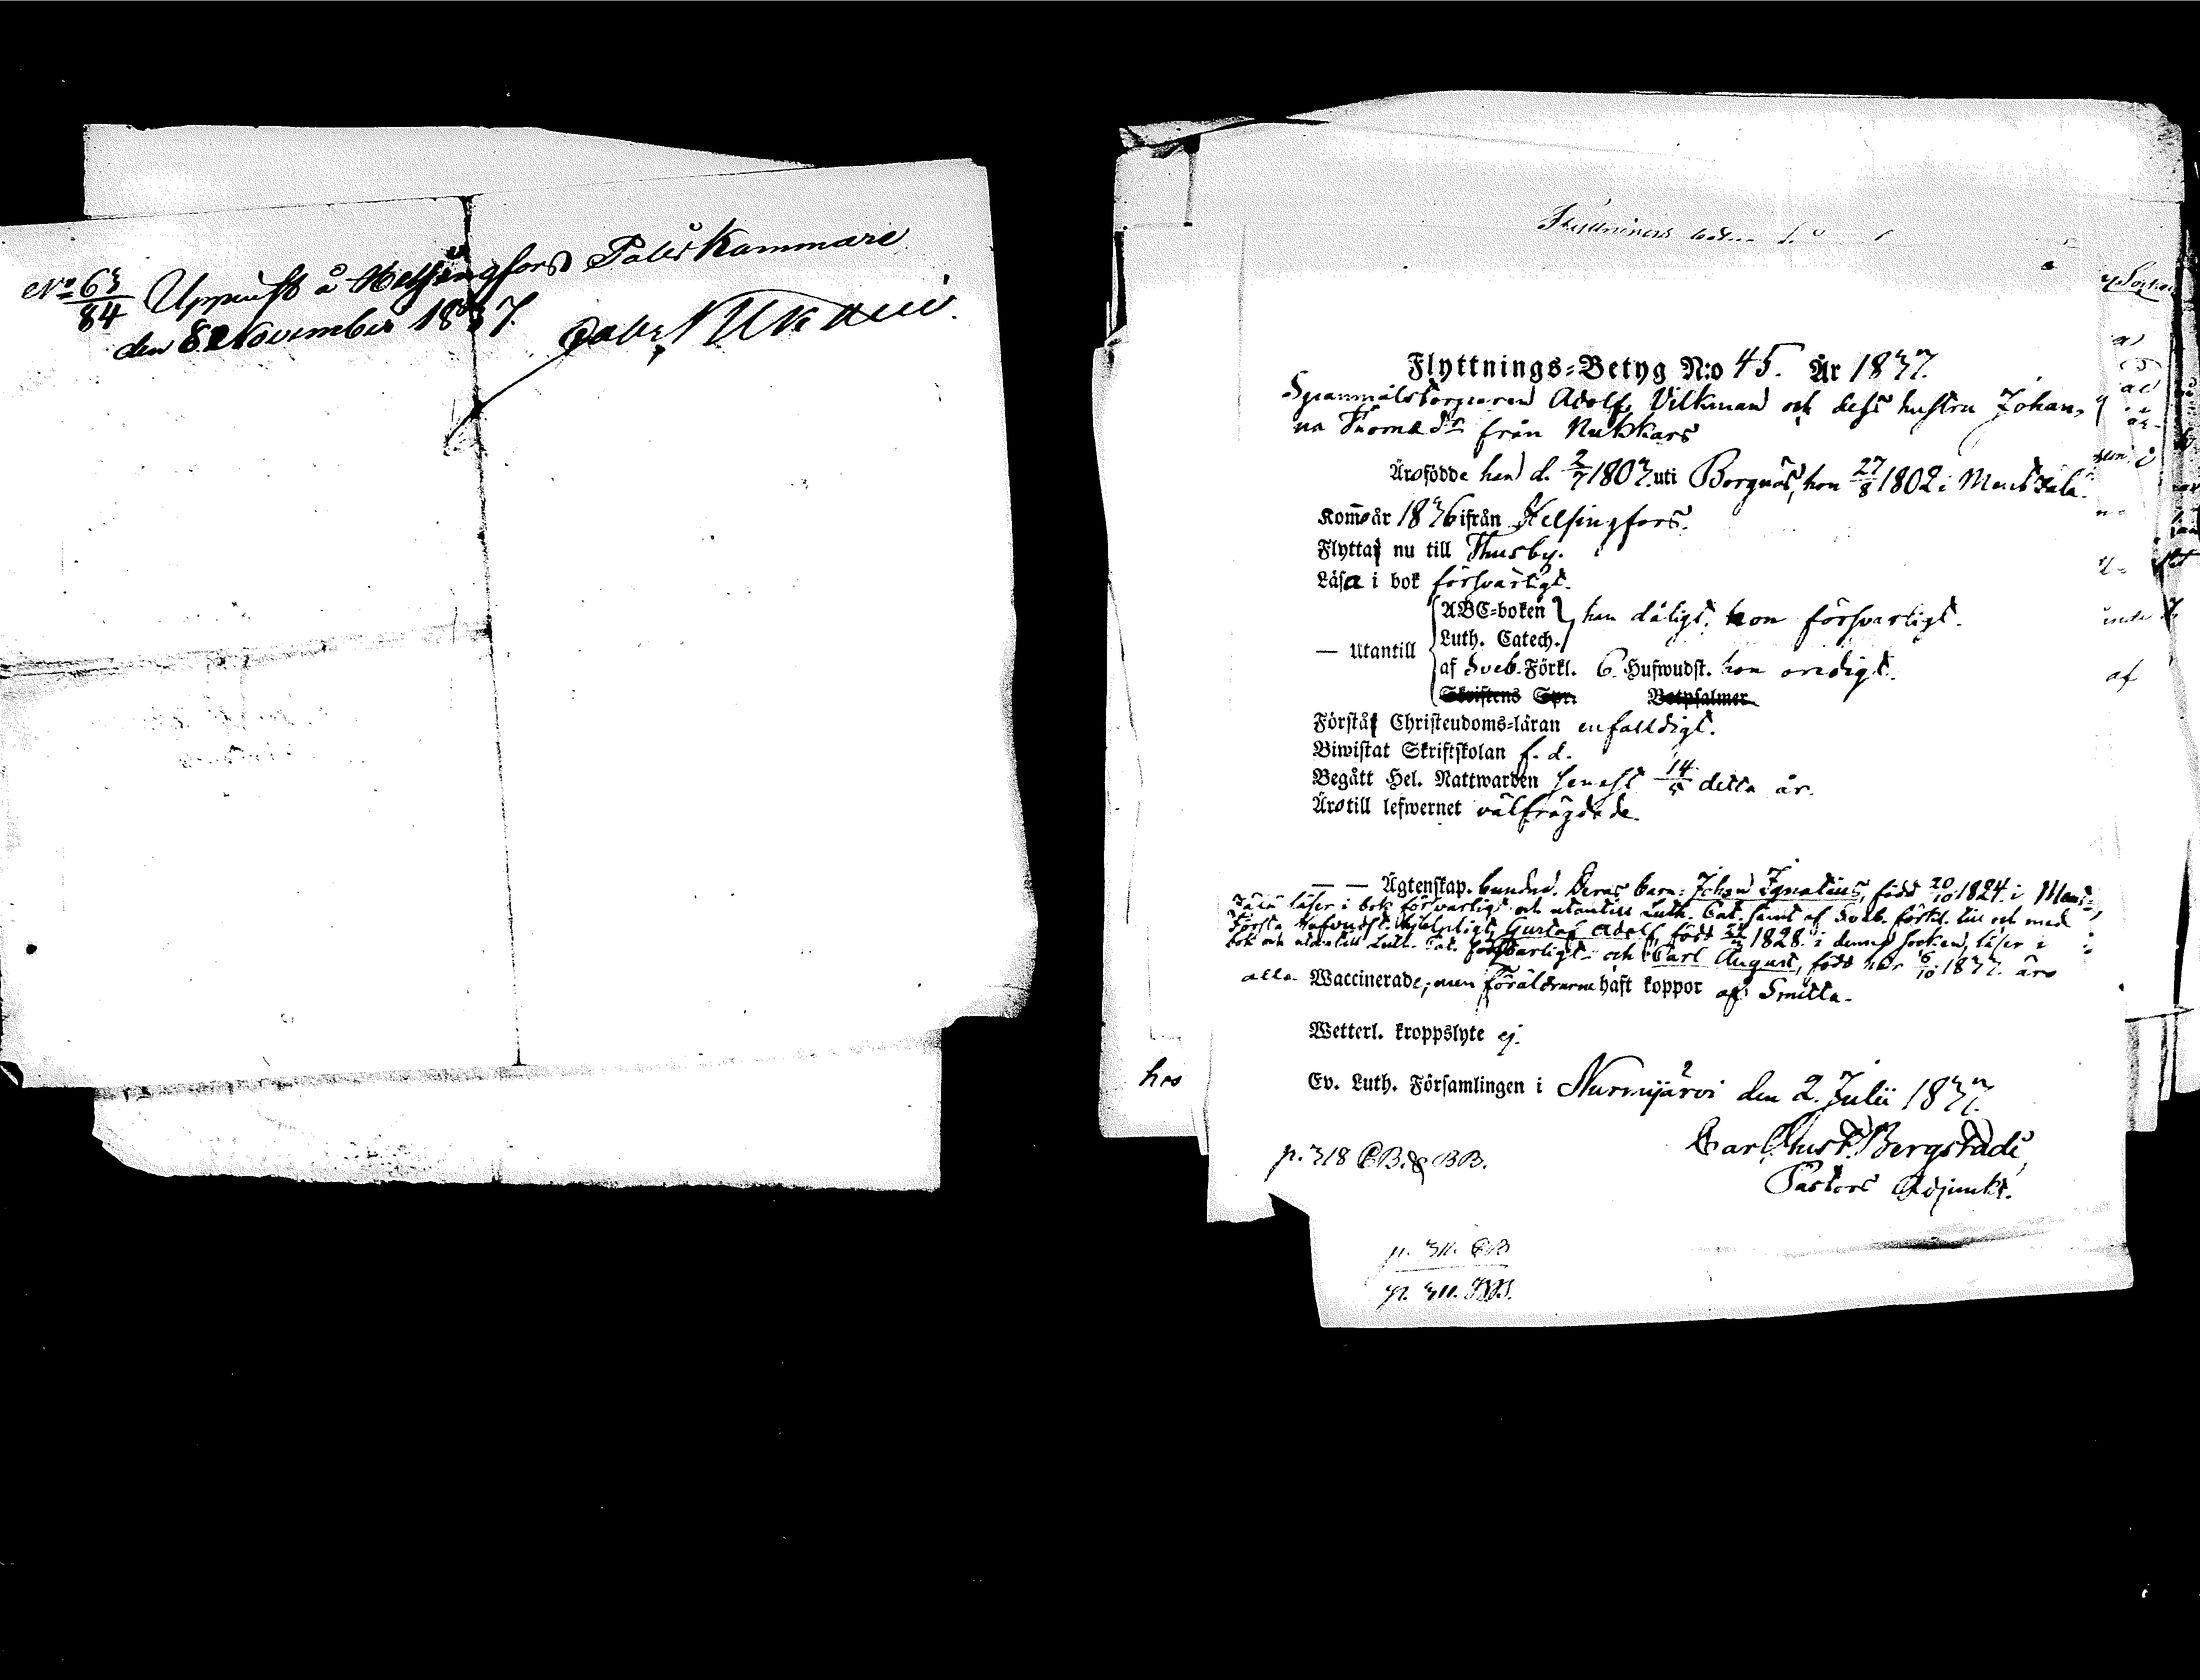 No 63/84 Uppvist å Helsingfors Polis Kammare
den 8 November 1837.
Flyttnings-Betyg N:o 45. År 1837.
Spanmålstorparen Adolf Vilkman och dess hustru Johan-
na Thomæ dr från Nukkars
Äro födde han d. 2/7 1803. uti Borgnäs, hon 27/8 1802 i
Kommo år 1836 ifrån Helsingfors.
Flytta nu till Thusby.
Läsa i bok försvarligt.
— Utantill
ABC-boken
Luth. Catech.
han dåligt, hon försvarligt.
af Sveb. Förkl. 6. Hufwudst. hon oredigt.
Skriftens Spr. Botpsalmer
Förstå Christendoms-läran enfaldigt.
Biwistat Skriftskolan f. d.
Begått Hel. Nattwarden senast 14/5 detta år.
Äro till lefwernet välfrägdade.
— — Ägtenskap. bundne. Deras barn: Johan Ignatius, född 20/10 1824. i
läser i bok försvarligt och utantill Luth. Cat. samt af Sveb. förkl. till och med
Första Hufvudst. hjelpligt, Gustaf Adolf, född 1828. i denna socken, läser i
bok och utantill Luth. Cat. försvarligt och Carl August, född här 6/10 1837. äro
alla Waccinerade, men föräldrarne haft koppor af Smitta.
Wetterl. kroppslyte ej.
Ev. Luth. Församlingen i Nurmijärvi den 2. Julii 1837.
Carl Gust. Bergstadi,
Pastors Adjunkt.
p. 318 CB. & BB.
p. 311. CB
p. 311. BB.
hos
af